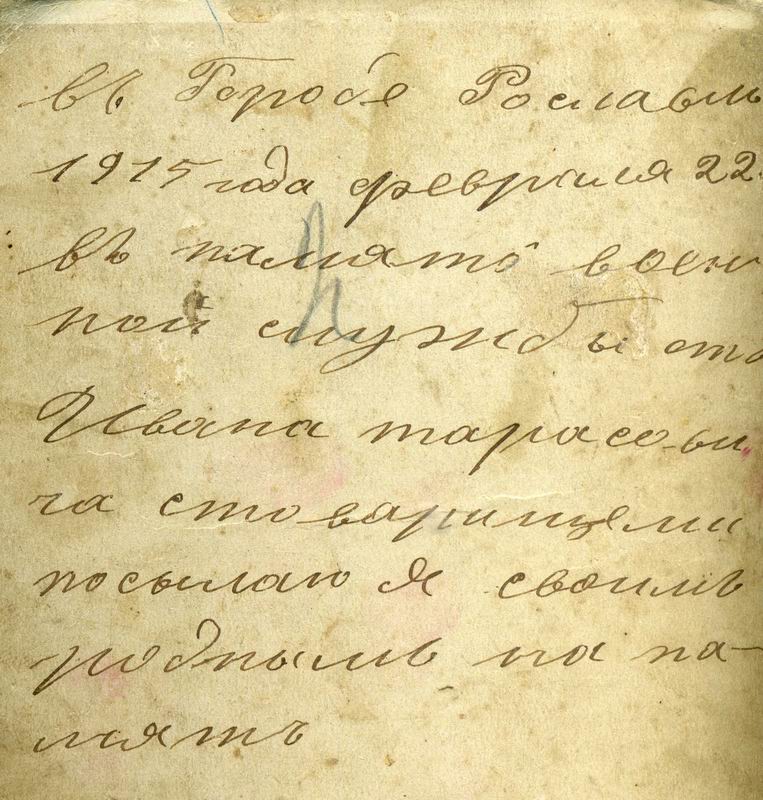 въ Городе Рославль
1915 года февраля 22.
въ память воен
ной службы отъ
Ивана тарасови
ча стоварищеми
посылаю Я своимъ
роднымъ на па-
мять